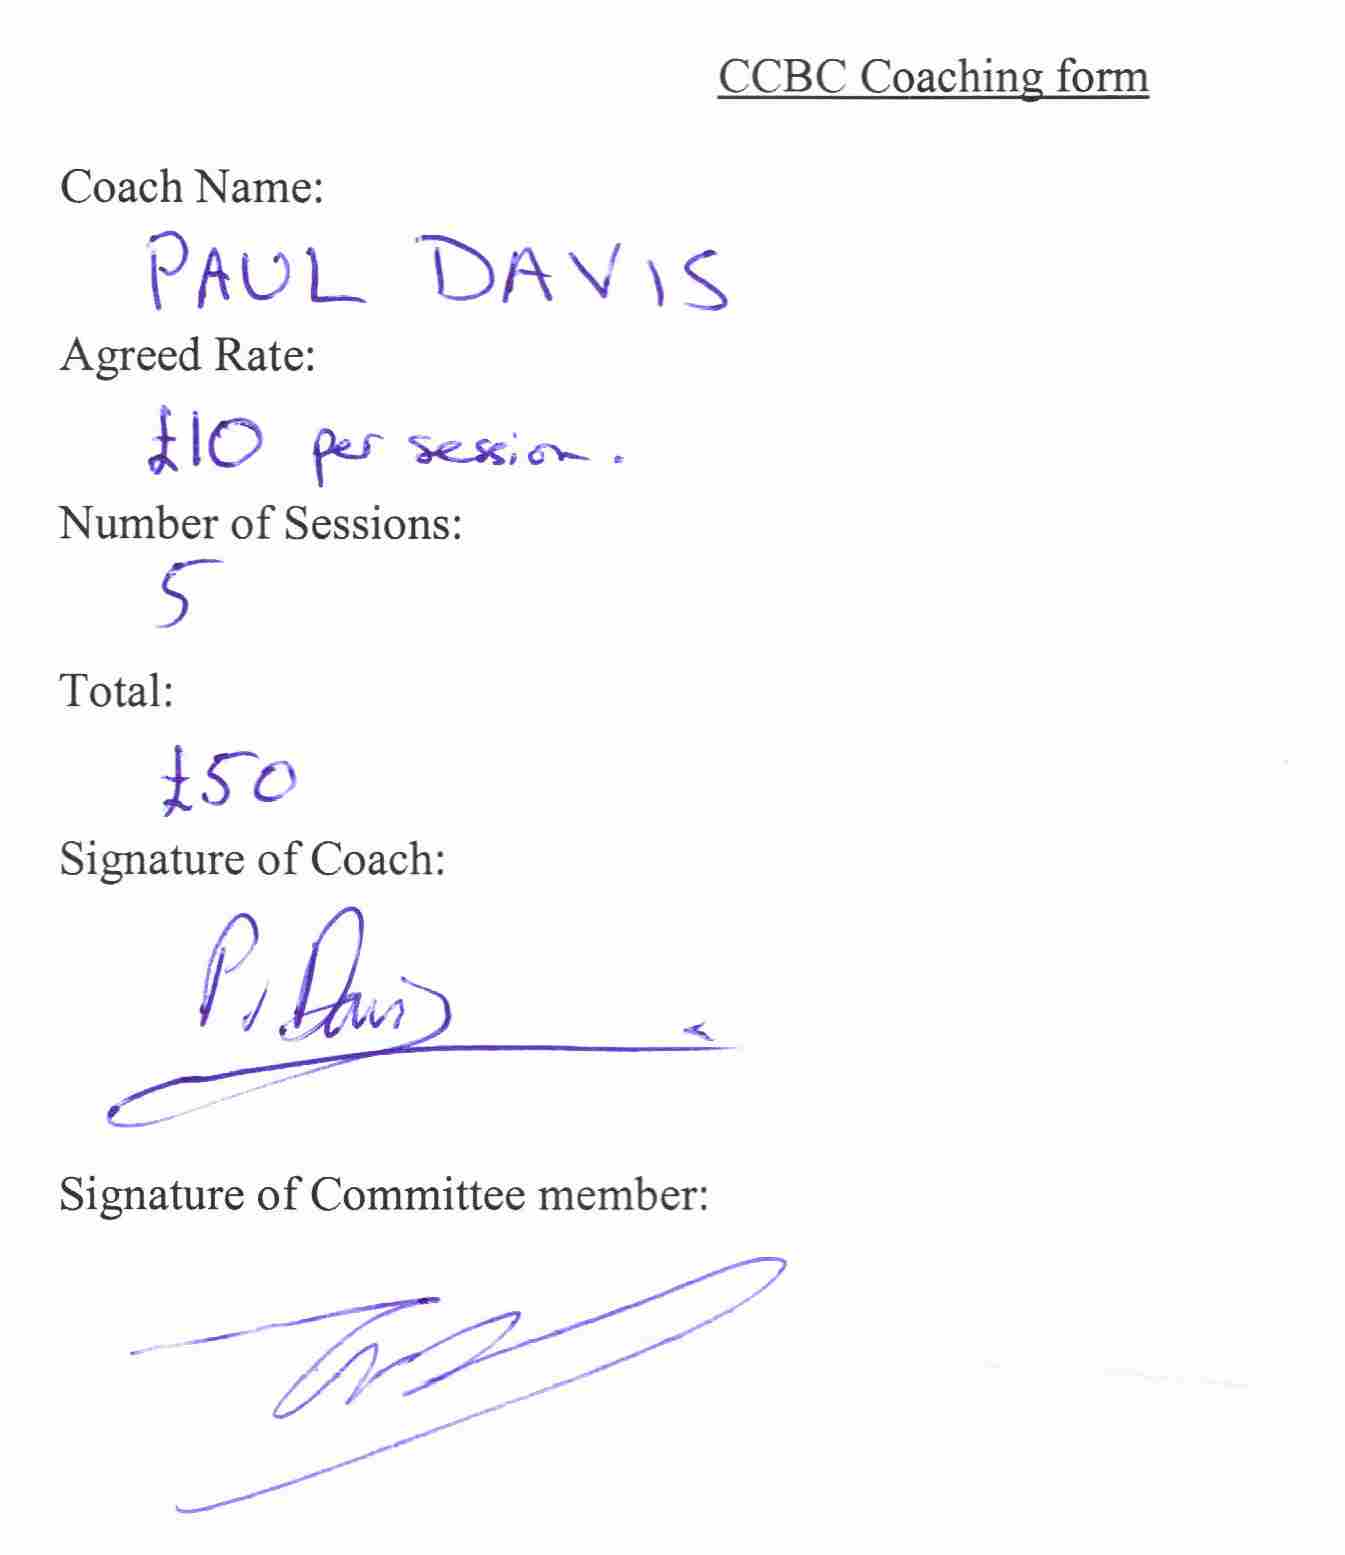 CCBC Coaching form
Coach Name:
PAUL DAVIS
Agreed Rate:
£10 per session.
Number of Sessions:
5
Total:
£50
Signature of Coach:
P. Davis
Signature of Committee member: